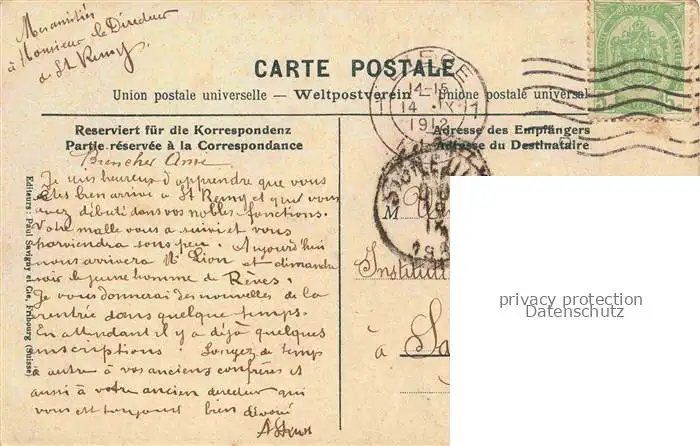 Mes amitiés
à Monsieur le Directeur
à St Remy.
CARTE POSTALE
Union postale universelle. — Weltpostverein — Unione postale universal
LIEGE
14-15
14 IX
1912
Reserviert für die Korrespondenz
Partie réservée à la Correspondance
Adresse des Empfängers
Adresse du Destinataire
Bien cher Ami
Je suis heureux d'apprendre que vous
êtes bien arrivé à St Remy et que vous
avez débuté dans vos nobles fonctions.
Votre malle vous a suivi et vous
parviendra sous peu. Aujourd'hui
nous arrivera Mr Lion et dimanche
soir le jeune homme de Rèves.
Je vous donnerai des nouvelles de la
rentrée dans quelque temps.
En attendant il y a déjà quelques
inscriptions. Songez de temps
à autre à vos anciens confrères et
aussi à votre ancien directeur qui
vous est toujours bien dévoué
M
Institut
à
Editeurs: Paul Savigny et Cie, Fribourg (Suisse)
privacy protection
Datenschutz